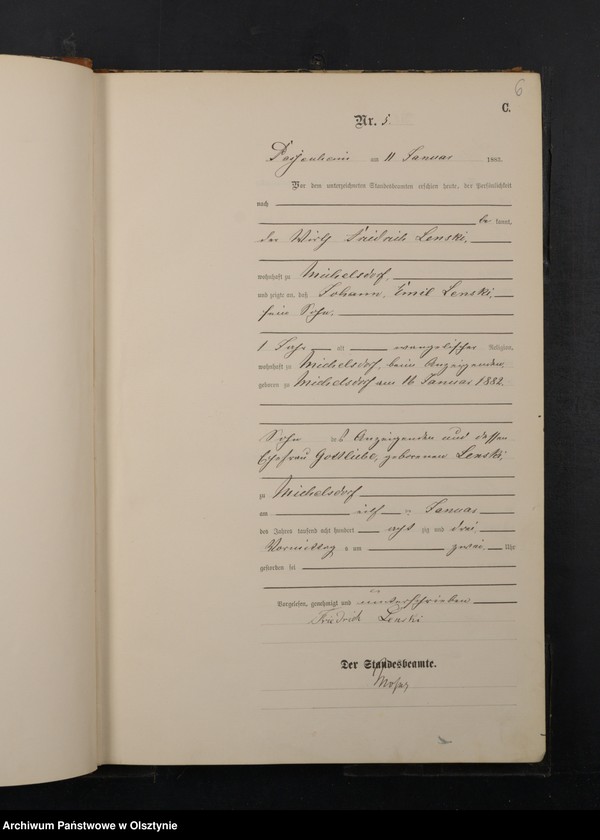 6
C.
Nr. 5.
am 11 Januar 1883.
Vor dem unterzeichneten Standesbeamten erschien heute, der Persönlichkeit
nach
be kannt,
der Wirth Friedrich Lenski,
wohnhaft zu Michelsdorf,
und zeigte an, daß Johann, Emil Lenski,
sein Sohn,
1 Jahr alt evangelischer Religion,
wohnhaft zu Michelsdorf, beim Anzeigenden,
geboren zu Michelsdorf am 16 Januar 1882
Sohn des Anzeigenden und dessen
Ehefrau Gottliebe, geborenen Lenski,
zu Michelsdorf
am elf ten Januar
des Jahres tausend acht hundert acht zig und drei
Vormittag s um zwei Uhr
gestorben sei
Vorgelesen, genehmigt und unterschrieben
Friedrich Lenski
Der Standesbeamte.
Archiwum Państwowe w Olsztynie